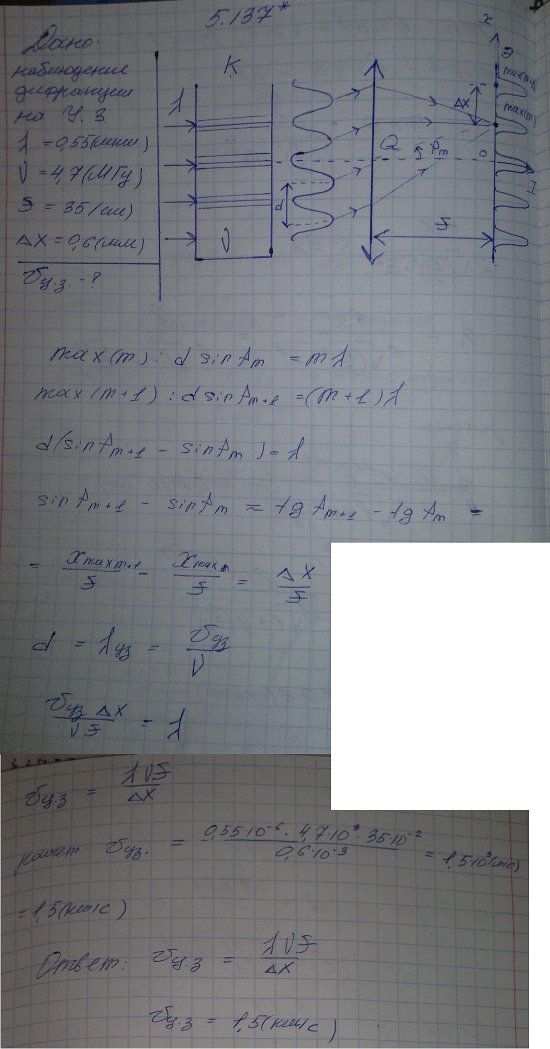 5.137*
Дано:
наблюдение
дифракции
на У.З
λ = 0,55(мкм)
ν = 4,7(МГц)
F = 35(см)
Δx = 0,6(мм)
υу.з. - ?
K
λ
ν
d
Q
φm
F
x
Э
max(m+1)
Δx
max(m)
0
I
max(m): d sinφm = mλ
max(m+1): d sinφm+1 = (m+1)λ
d(sinφm+1 - sinφm) = λ
sinφm+1 - sinφm ≈ tgφm+1 - tgφm =
= xmaxm+1/F - xmaxm/F = Δx/F
d = λуз = υуз/ν
υуз Δx/νF = λ
υуз = λνF/Δx
расчет: υуз. = 0,55·10^-6 · 4,7·10^9 · 35·10^-2/0,6·10^-3 = 1,5·10^3(м/с)
= 1,5(км/с)
Ответ: υу.з = λνF/Δx
υу.з = 1,5(км/с)